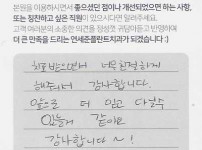 본원을 이용하시면서 좋으셨던 점이나 개선되었으면 하는 사항,
또는 칭찬하고 싶은 직원이 있으시다면 말려주세요.
고객 여러분의 소중한 의견을 정성껏 귀담아듣고 반영하여
더 큰 만족을 드리는 연세준플란트치과가 되겠습니다 :)
치료 받으면서 너무 친절하게
해주셔서 감사합니다.
앞으로 더 믿고 다닐수
있을거 같아요
감사합니다 ~!